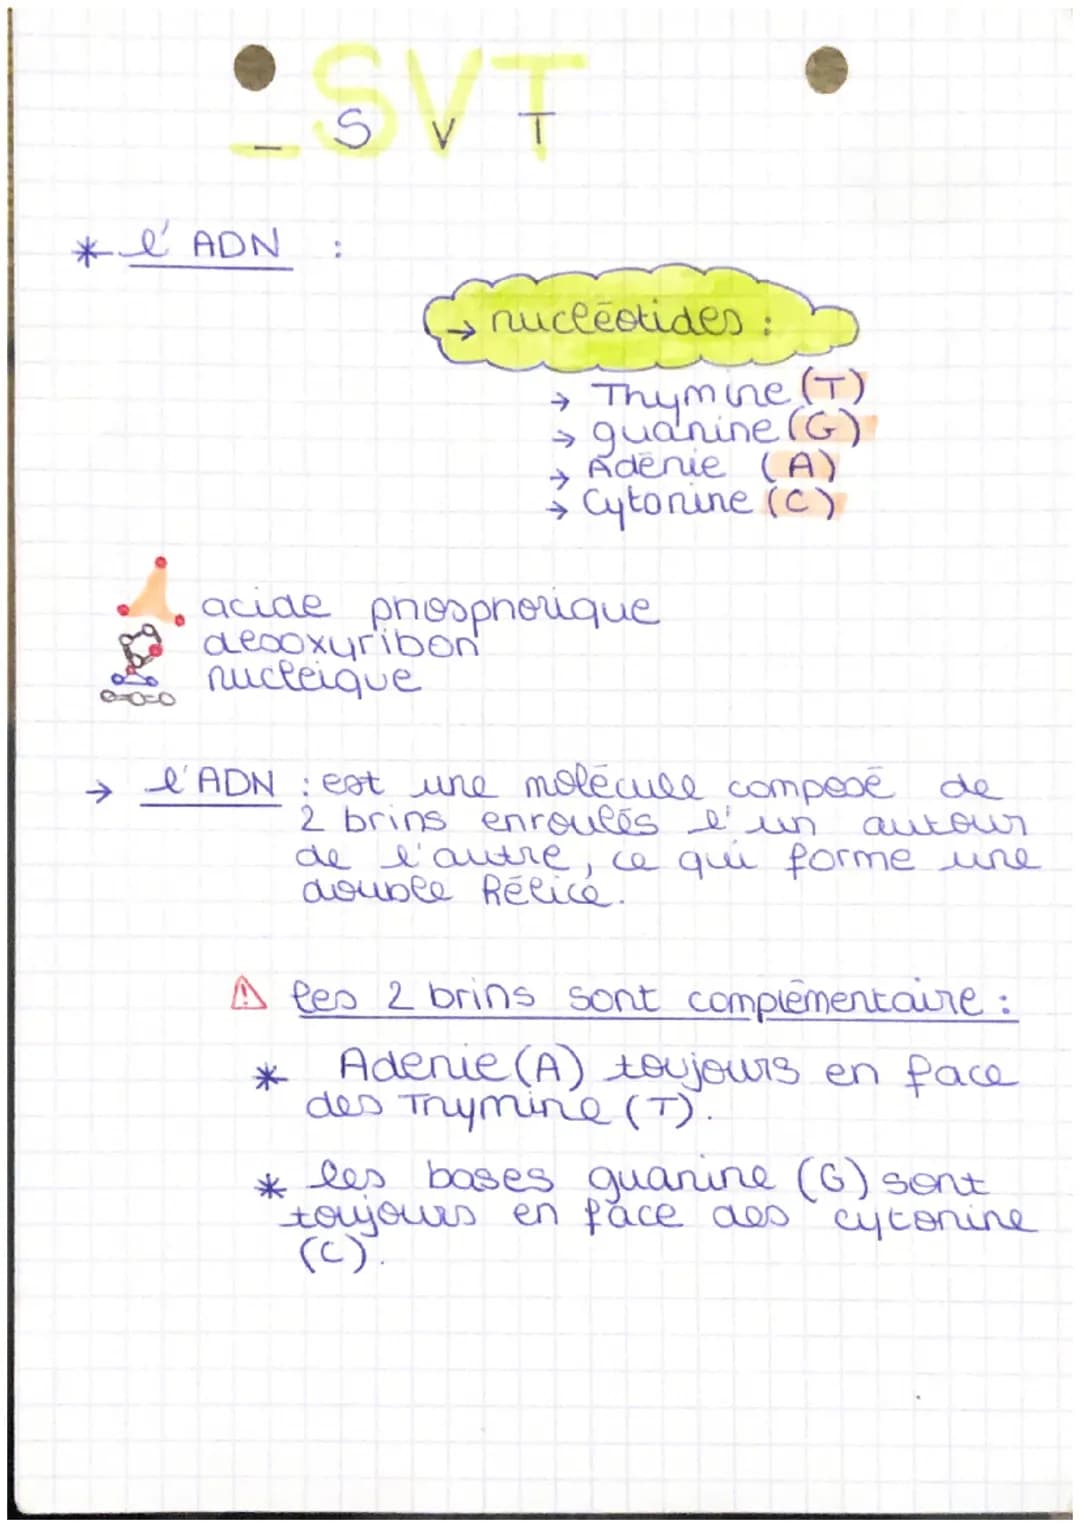 _ SVT
_ S V T
* l'ADN :
→ nucléotides :
→ Thymine (T)
→ guanine (G)
→ Adénie (A)
→ Cytonine (C)
acide phosphorique
desoxyribon
nucleique
→ l'ADN : est une molécule composé de
2 brins enroulés l'un autour
de l'autre, ce qui forme une
double hélice.
⚠ les 2 brins sont complémentaire :
* Adenie (A) toujours en face
des Thymine (T).
* les bases guanine (G) sont
toujours en face des cytonine
(C).